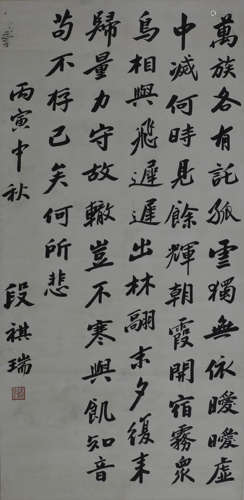 萬族各有託孤雲獨無依曖曖虛
中滅何時見餘輝朝霞開宿霧眾
鳥相與飛遲遲出林翮未夕復来
歸量力守故轍豈不寒與飢知音
苟不存已矣何所悲
丙寅中秋
段祺瑞